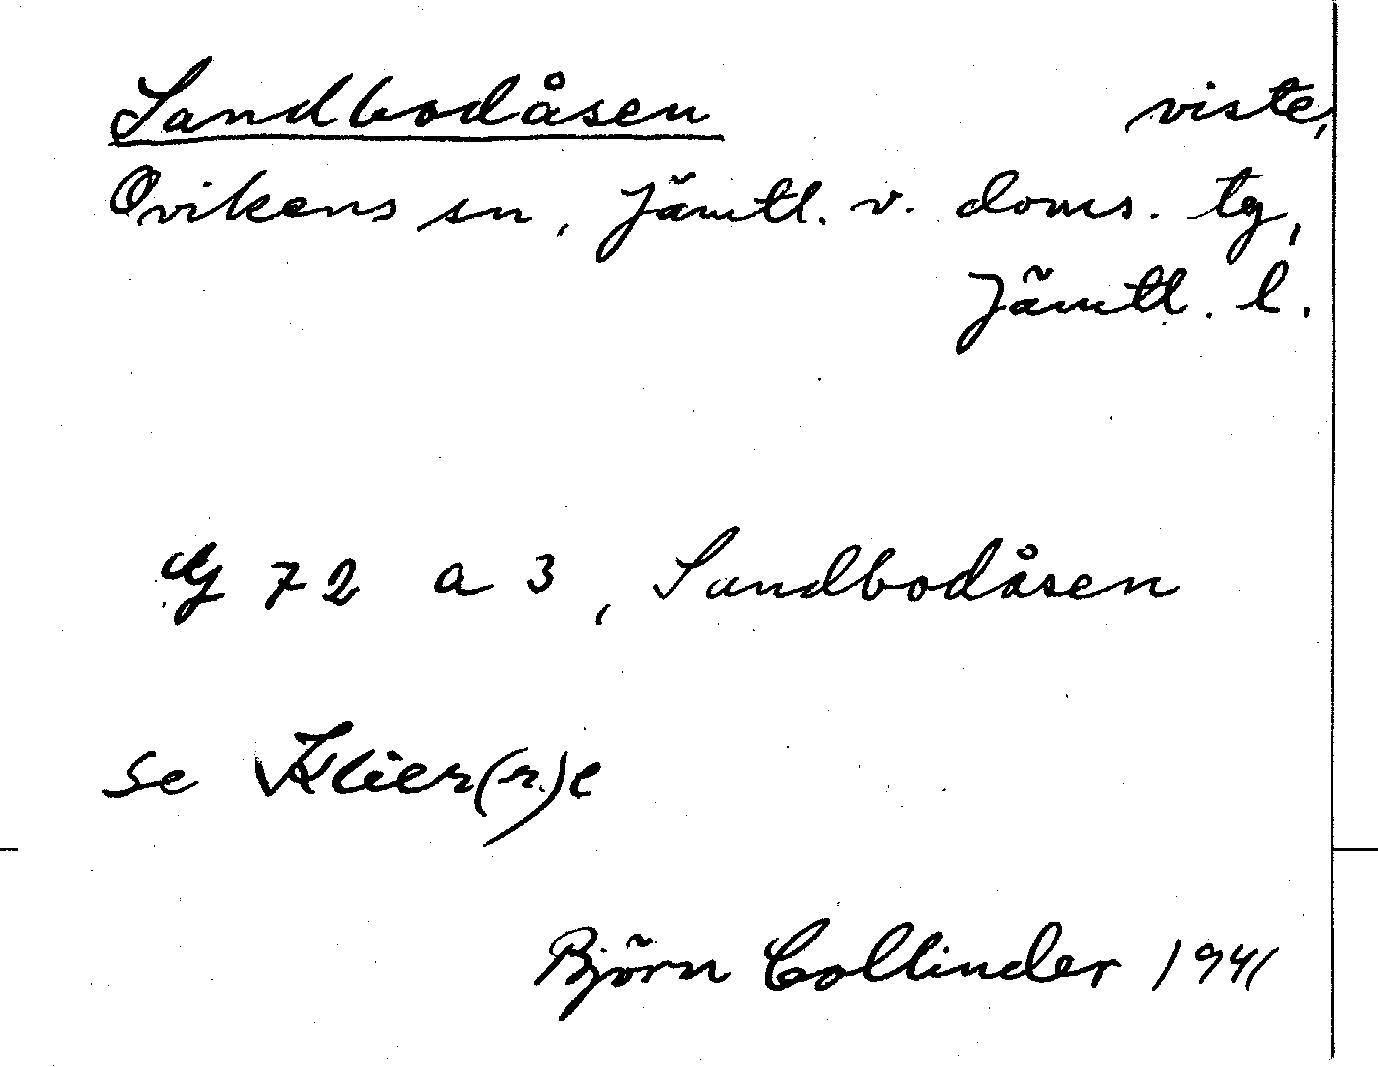 Sandbodåsen viste,
Ovikens sn, Jämtl. v. doms. tg,
Jämtl. l.
G 72 a 3, Sandbodåsen
se Klier(r)e
Björn Collinder 1941